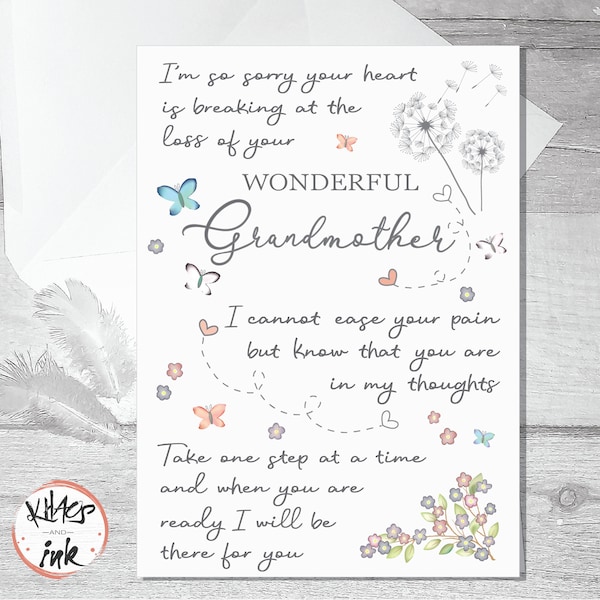 I'm so sorry your heart
is breaking at the
loss of your
WONDERFUL
Grandmother
I cannot ease your pain
but know that you are
in my thoughts
Take one step at a time
and when you are
ready I will be
there for you
AND
ink